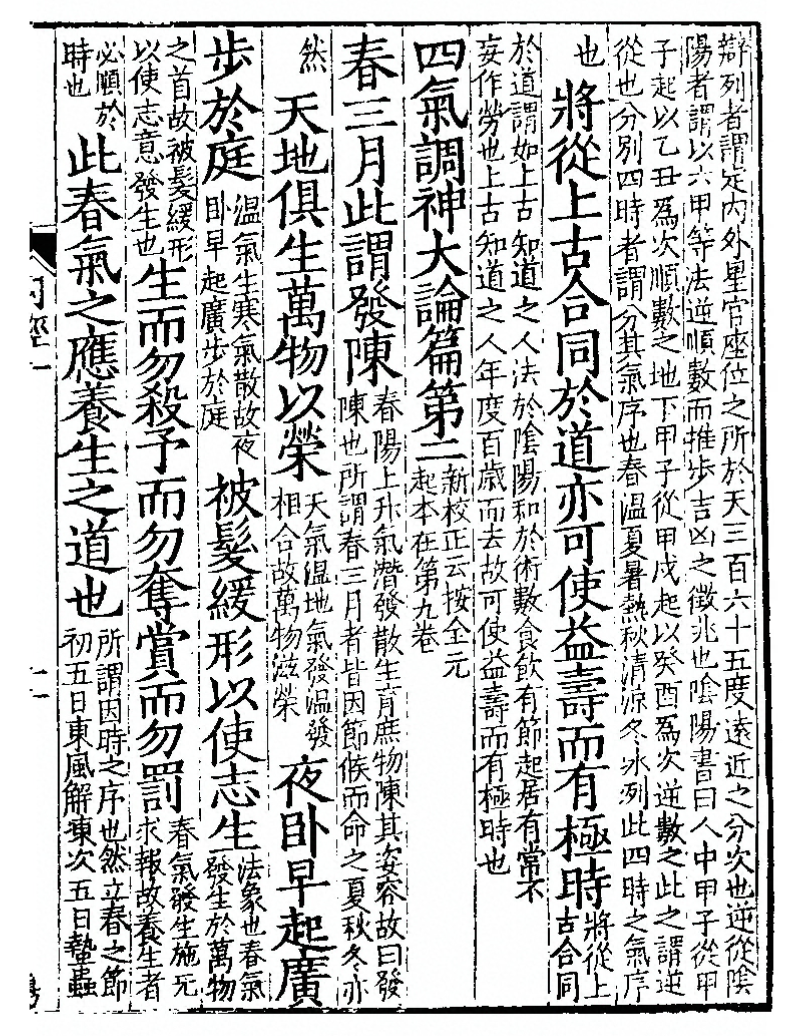 辯列者謂定内外星官座位之所於天三百六十五度遠近之分次也逆從隂
陽者謂以六甲等法逆順數而推步吉凶之徵兆也隂陽書曰人中甲子從甲
子起以乙丑爲次順數之地下甲子從甲戌起以癸酉爲次逆數之此之謂逆
從也分別四時者謂分其氣序也春溫夏暑熱秋清涼冬冰列此四時之氣序
也將從上古合同於道亦可使益壽而有極時將從上古合同
於道謂如上古知道之人法於隂陽和於術數食飲有節起居有常不
妄作勞也上古知道之人年度百歲而去故可使益壽而有極時也
四氣調神大論篇第二新校正云按全元起本在第九卷
春三月此謂發陳春陽上升氣潛發散生育庶物陳其姿容故曰發陳也所謂春三月者皆因節候而命之夏秋冬亦
然天地俱生萬物以榮天氣温地氣發温發相合故萬物滋榮夜卧早起廣
步於庭温氣生寒氣散故夜卧早起廣步於庭被髮緩形以使志生法象也春氣發生於萬物
之首故被髮緩形以使志意發生也生而勿殺予而勿奪賞而勿罰春氣發生施无求報故養生者
必順於時也此春氣之應養生之道也所謂因時之序也然立春之節初五日東風解凍次五日蟄蟲